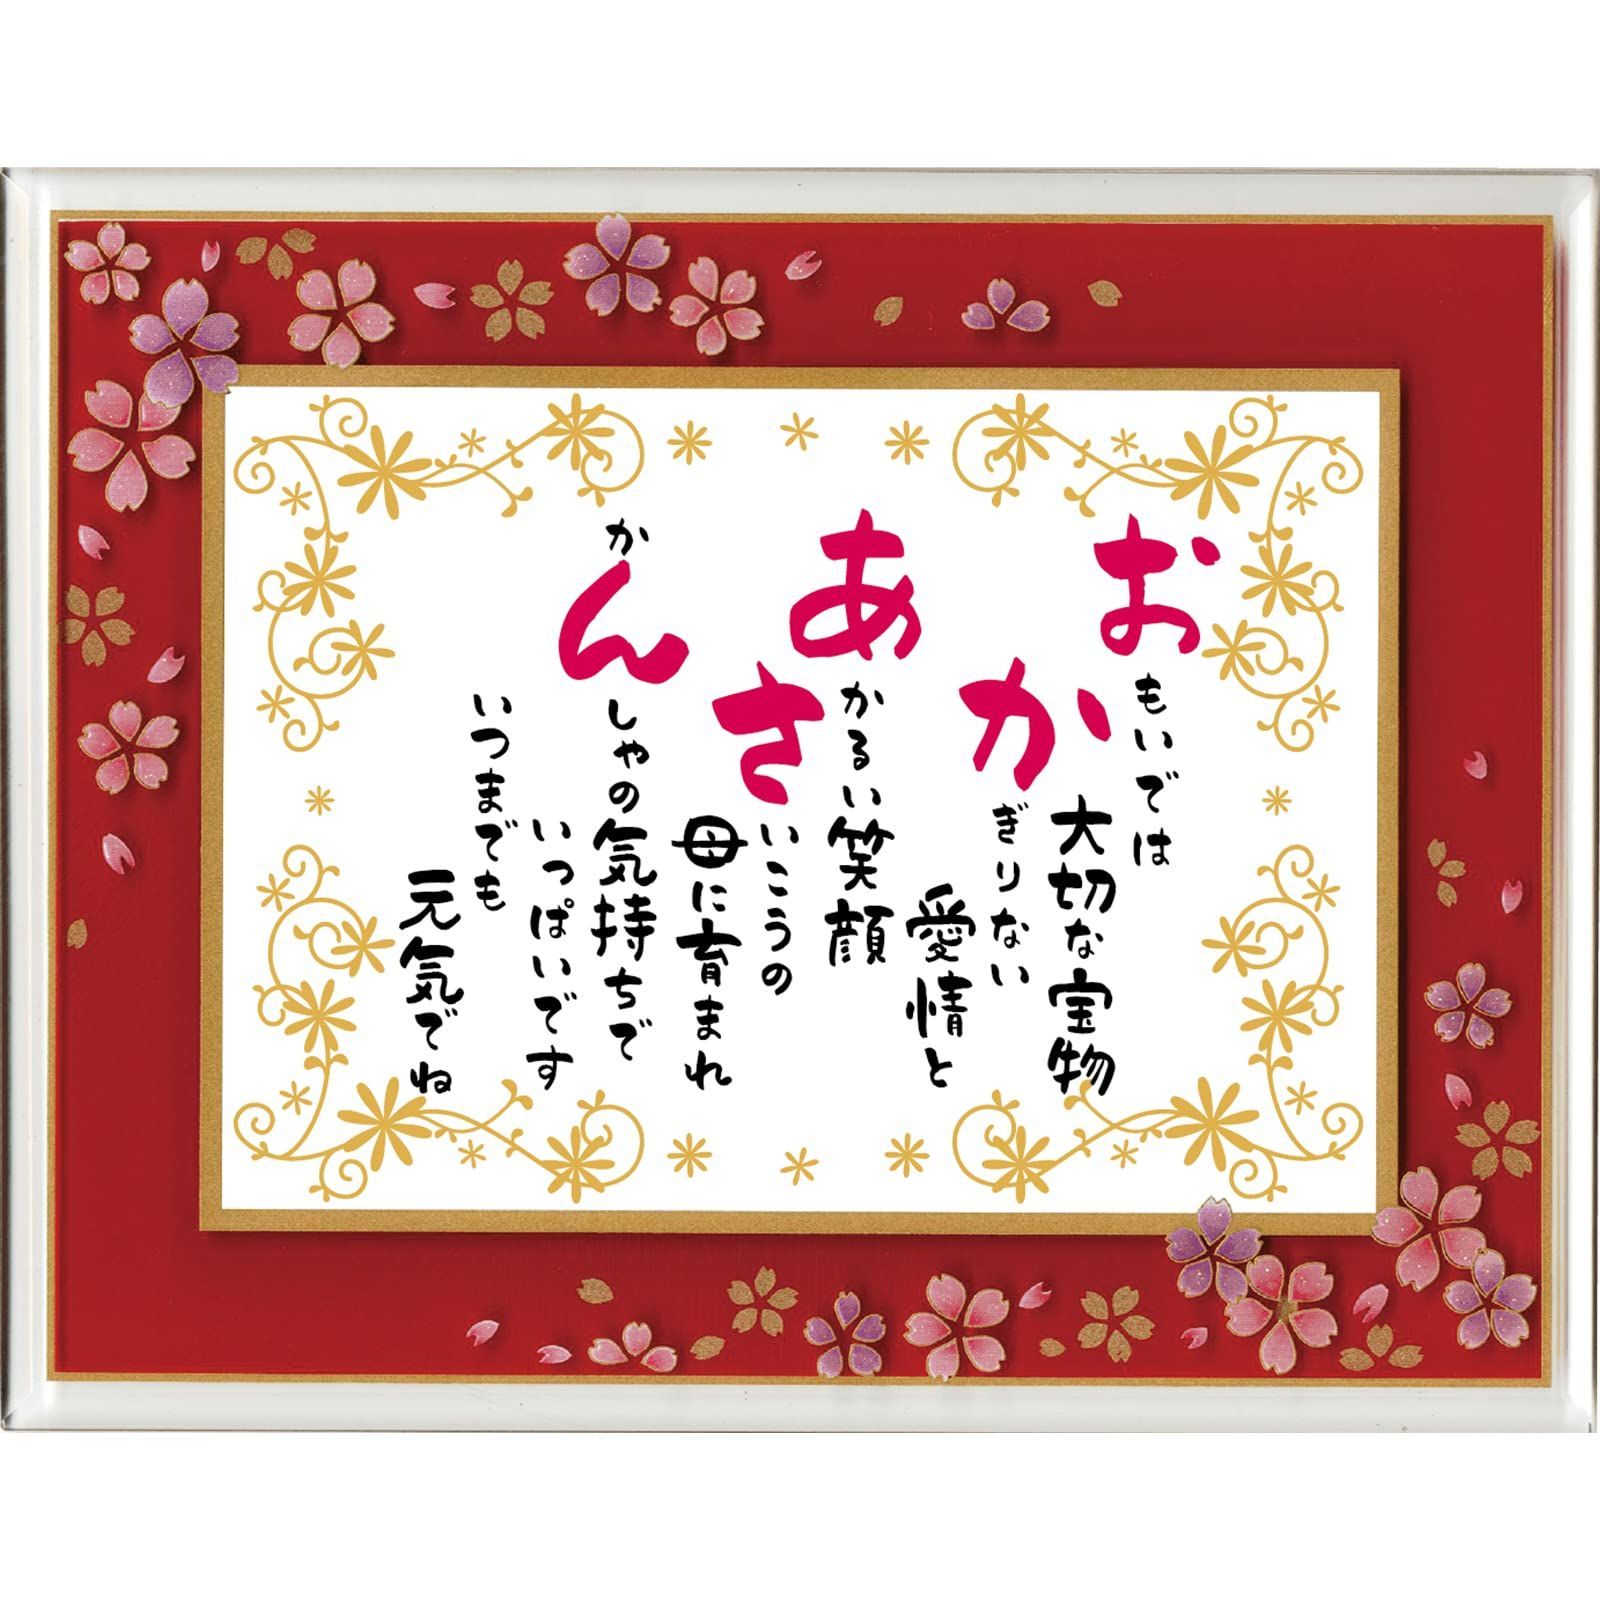 おもいでは
大切な宝物
かぎりない
愛情と
あかるい笑顔
さいこうの
母に育まれ
かんしゃの気持ちで
いっぱいです
いつまでも
元気でね